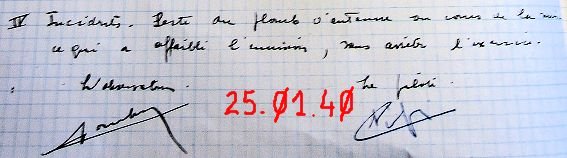 IV Incidents. Perte du plomb d'antenne au cours de la
ce qui a affaibli l'émission, sans arrêter l'exercice.
L'observateur Le pilote.
25.01.40